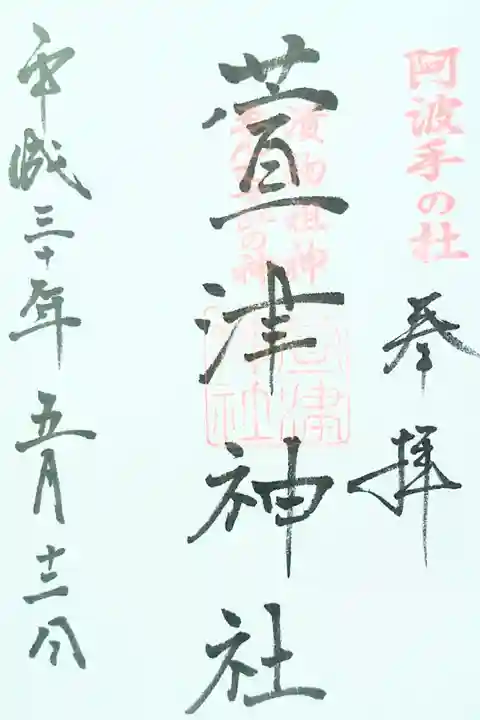 阿波手の杜
奉拝
漬物祖神
萱津神社
萱津神社
平成三十年五月十三日